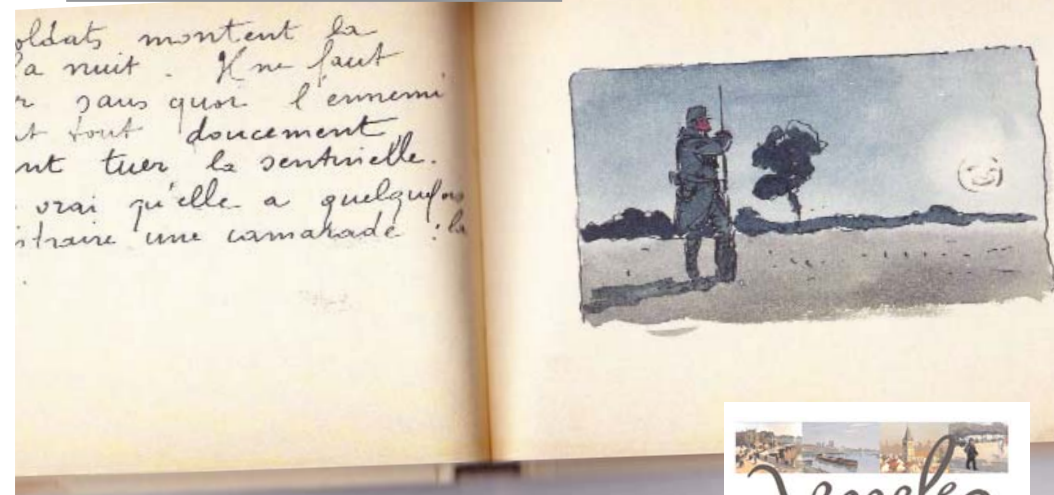 oldats montent la
la nuit. Il ne faut
r sans quoi l'ennemi
t tout doucement,
nt tuer la sentinelle.
vrai qu'elle a quelquefois
straire une camarade : la